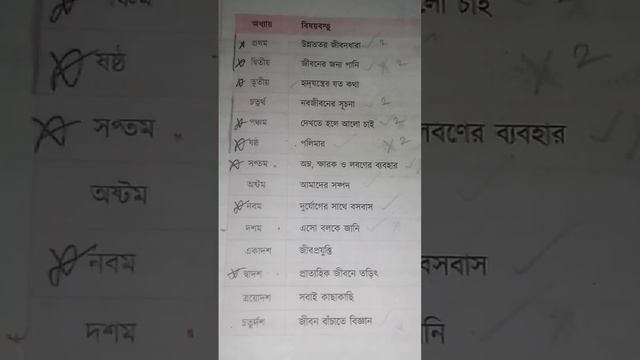 অধ্যায় বিষয়বস্তু
প্রথম উন্নততর জীবনধারা 2
দ্বিতীয় জীবনের জন্য পানি 2
তৃতীয় হৃদযন্ত্রের যত কথা
চতুর্থ নবজীবনের সূচনা 2
পঞ্চম দেখতে হলে আলো চাই 2
ষষ্ঠ পলিমার 2
সপ্তম অম্ল, ক্ষারক ও লবণের ব্যবহার
অষ্টম আমাদের সম্পদ
নবম দুর্যোগের সাথে বসবাস
দশম এসো বলকে জানি
একাদশ জীবপ্রযুক্তি
দ্বাদশ প্রাত্যহিক জীবনে তড়িৎ
ত্রয়োদশ সবাই কাছাকাছি
চতুর্দশ জীবন বাঁচাতে বিজ্ঞান
ষষ্ঠ 2
সপ্তম লবণের ব্যবহার
অষ্টম
নবম বসবাস
দশম নি